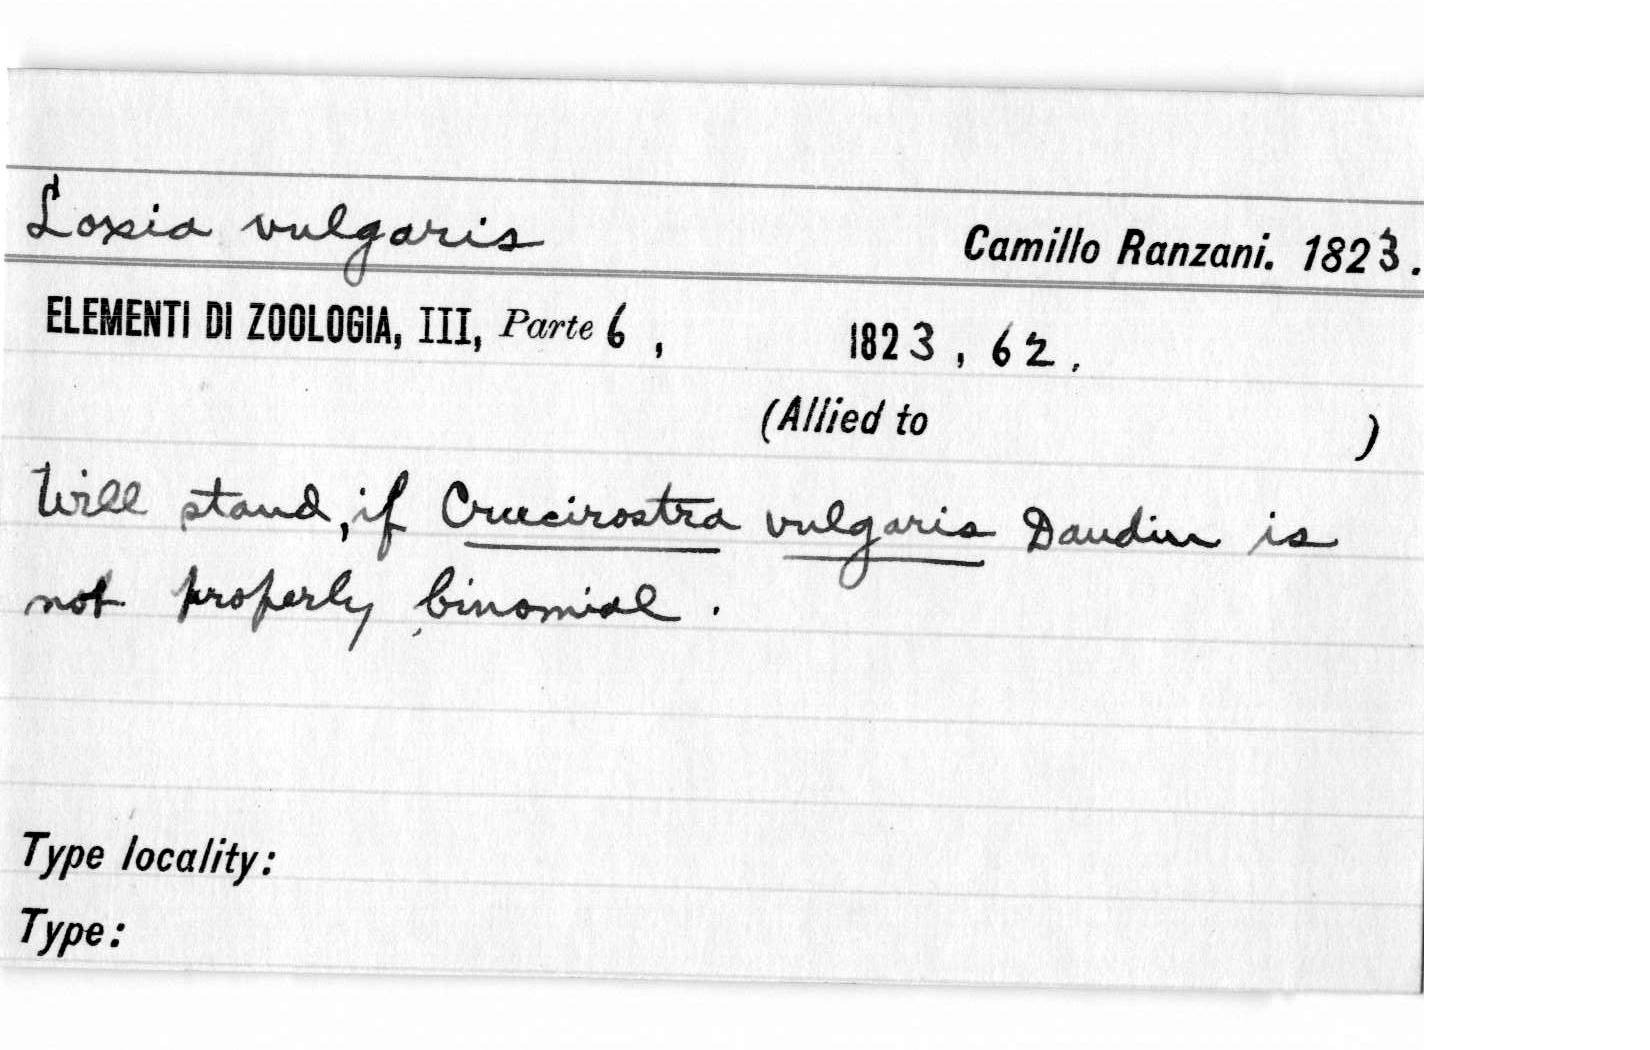 Loxia vulgaris Camillo Ranzani. 1823.
ELEMENTI DI ZOOLOGIA, III, Parte 6, 1823, 62.
(Allied to )
Will stand, if Crucirostra vulgaris Daudin is
not properly binomial.
Type locality:
Type: